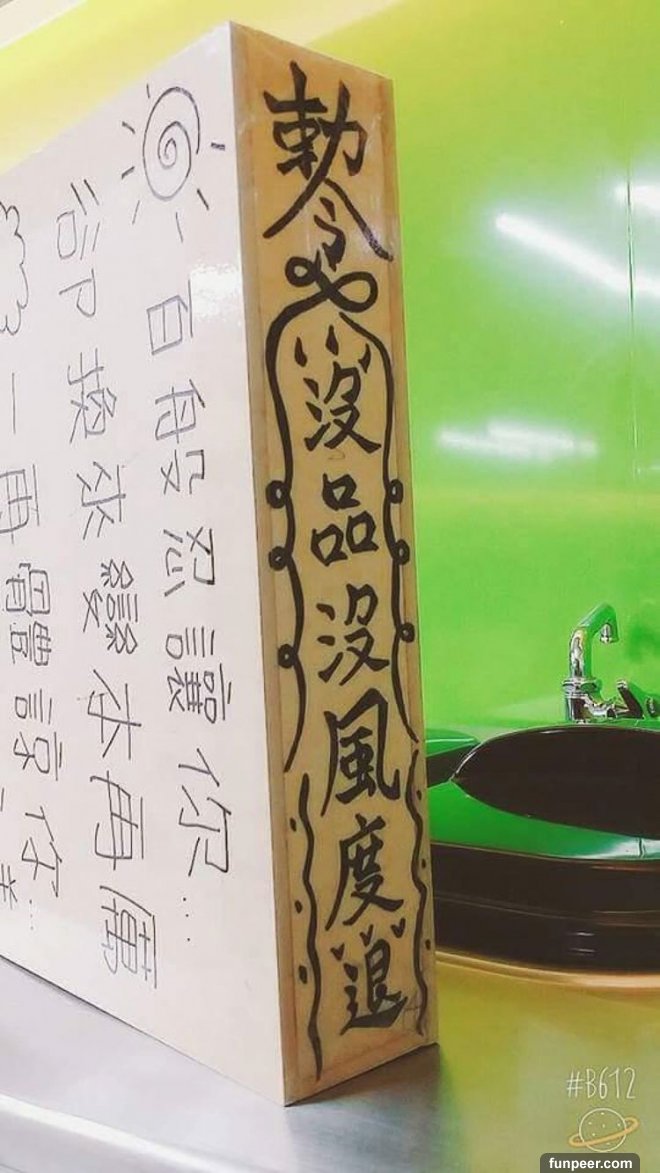 勅令
沒品沒風度退
百般忍讓你...
卻換來變本再厲
一再體諒你...
#B612
funpeer.com